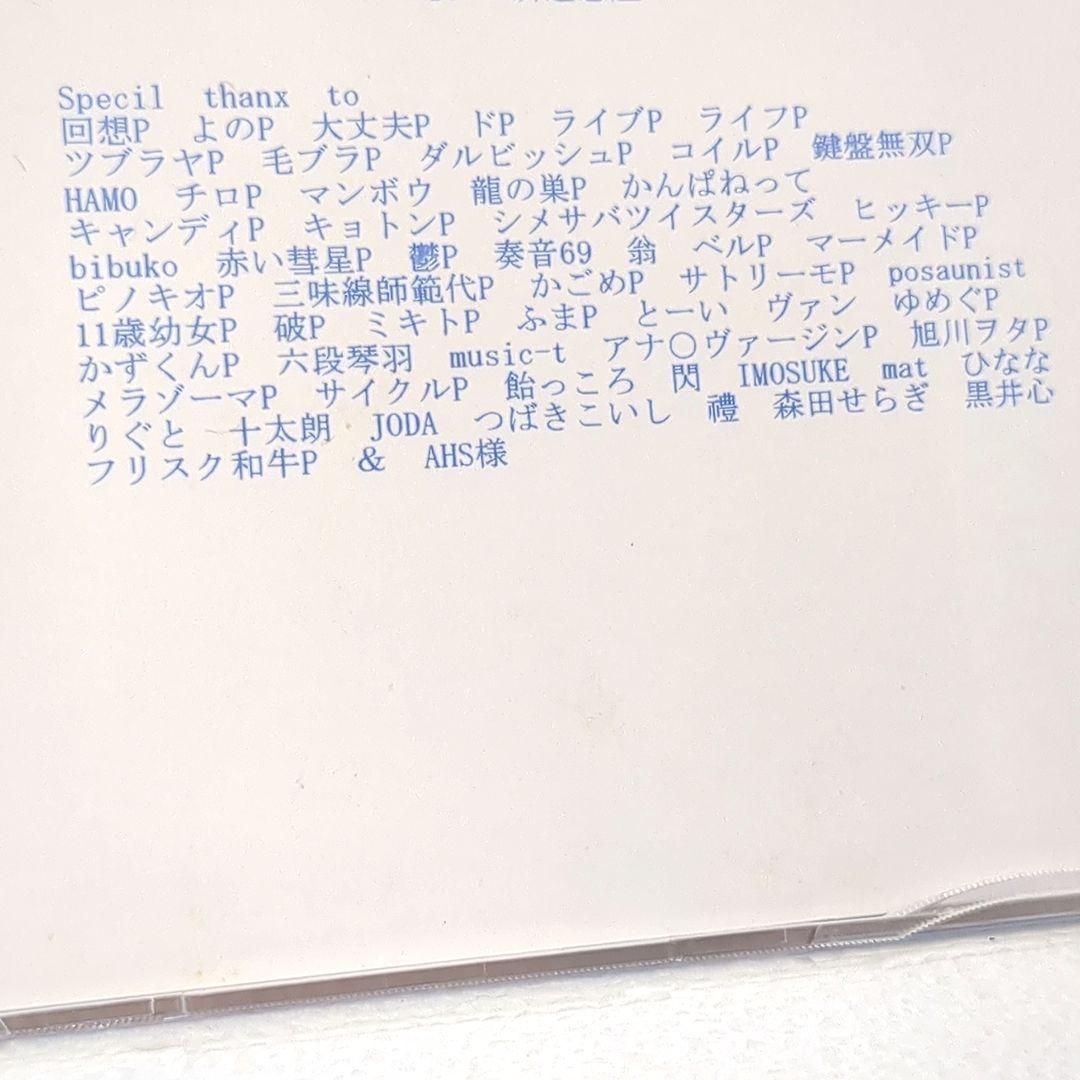 Specil thanx to
回想P よのP 大丈夫P ドP ライブP ライフP
ツブラヤP 毛ブラP ダルビッシュP コイルP 鍵盤無双P
HAMO チロP マンボウ 龍の巣P かんぱねって
キャンディP キョトンP シメサバツイスターズ ヒッキーP
bibuko 赤い彗星P 鬱P 奏音69 翁 ベルP マーメイドP
ピノキオP 三味線師範代P かごめP サトリーモP posaunist
11歳幼女P 破P ミキトP ふまP とーい ヴァン ゆめぐP
かずくんP 六段琴羽 music-t アナ○ヴァージンP 旭川ヲタP
メラゾーマP サイクルP 飴っころ 閃 IMOSUKE mat ひなな
りぐと 十太朗 JODA つばきこいし 禮 森田せらぎ 黒井心
フリスク和牛P & AHS様